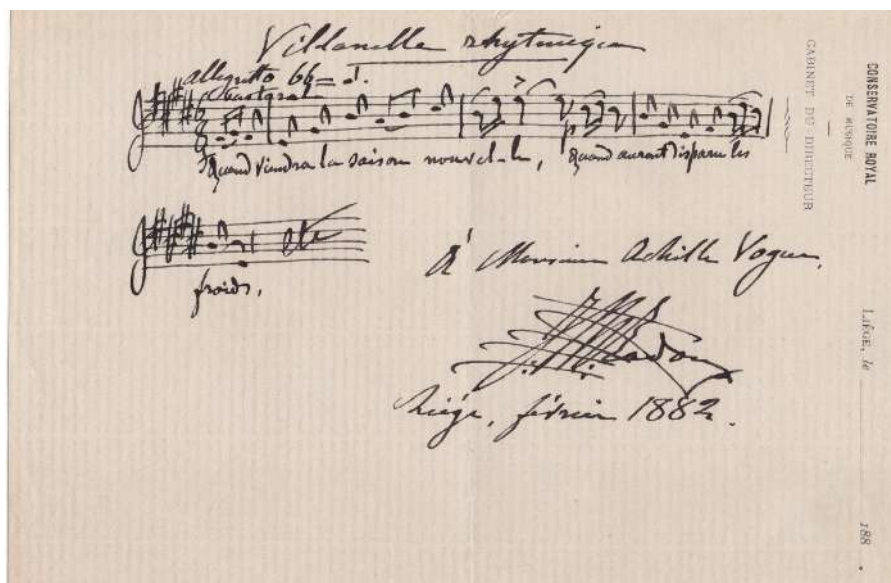 Villanelle rhytmique
allegretto 66 = ♩.
Pastoral
Quand viendra la saison nouvel-le, quand auront disparu les
froids,
etc
A Monsieur Achille
Liége, février 1882.
CONSERVATOIRE ROYAL
DE MUSIQUE
CABINET DU DIRECTEUR
LIÉGE, le
188 .